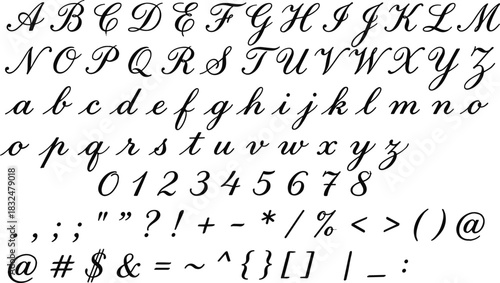 A B C D E F G H I J K L M
N O P Q R S T U V W X Y Z
a b c d e f g h i j k l m n o
o p q r s t u v w x y z
0 1 2 3 4 5 6 7 8
. , ; ; " ” ? ! + - * / % < > ( ) @
@ # $ & = ~ ^ { } [ ] | _ :
Adobe Stock | #1832479018